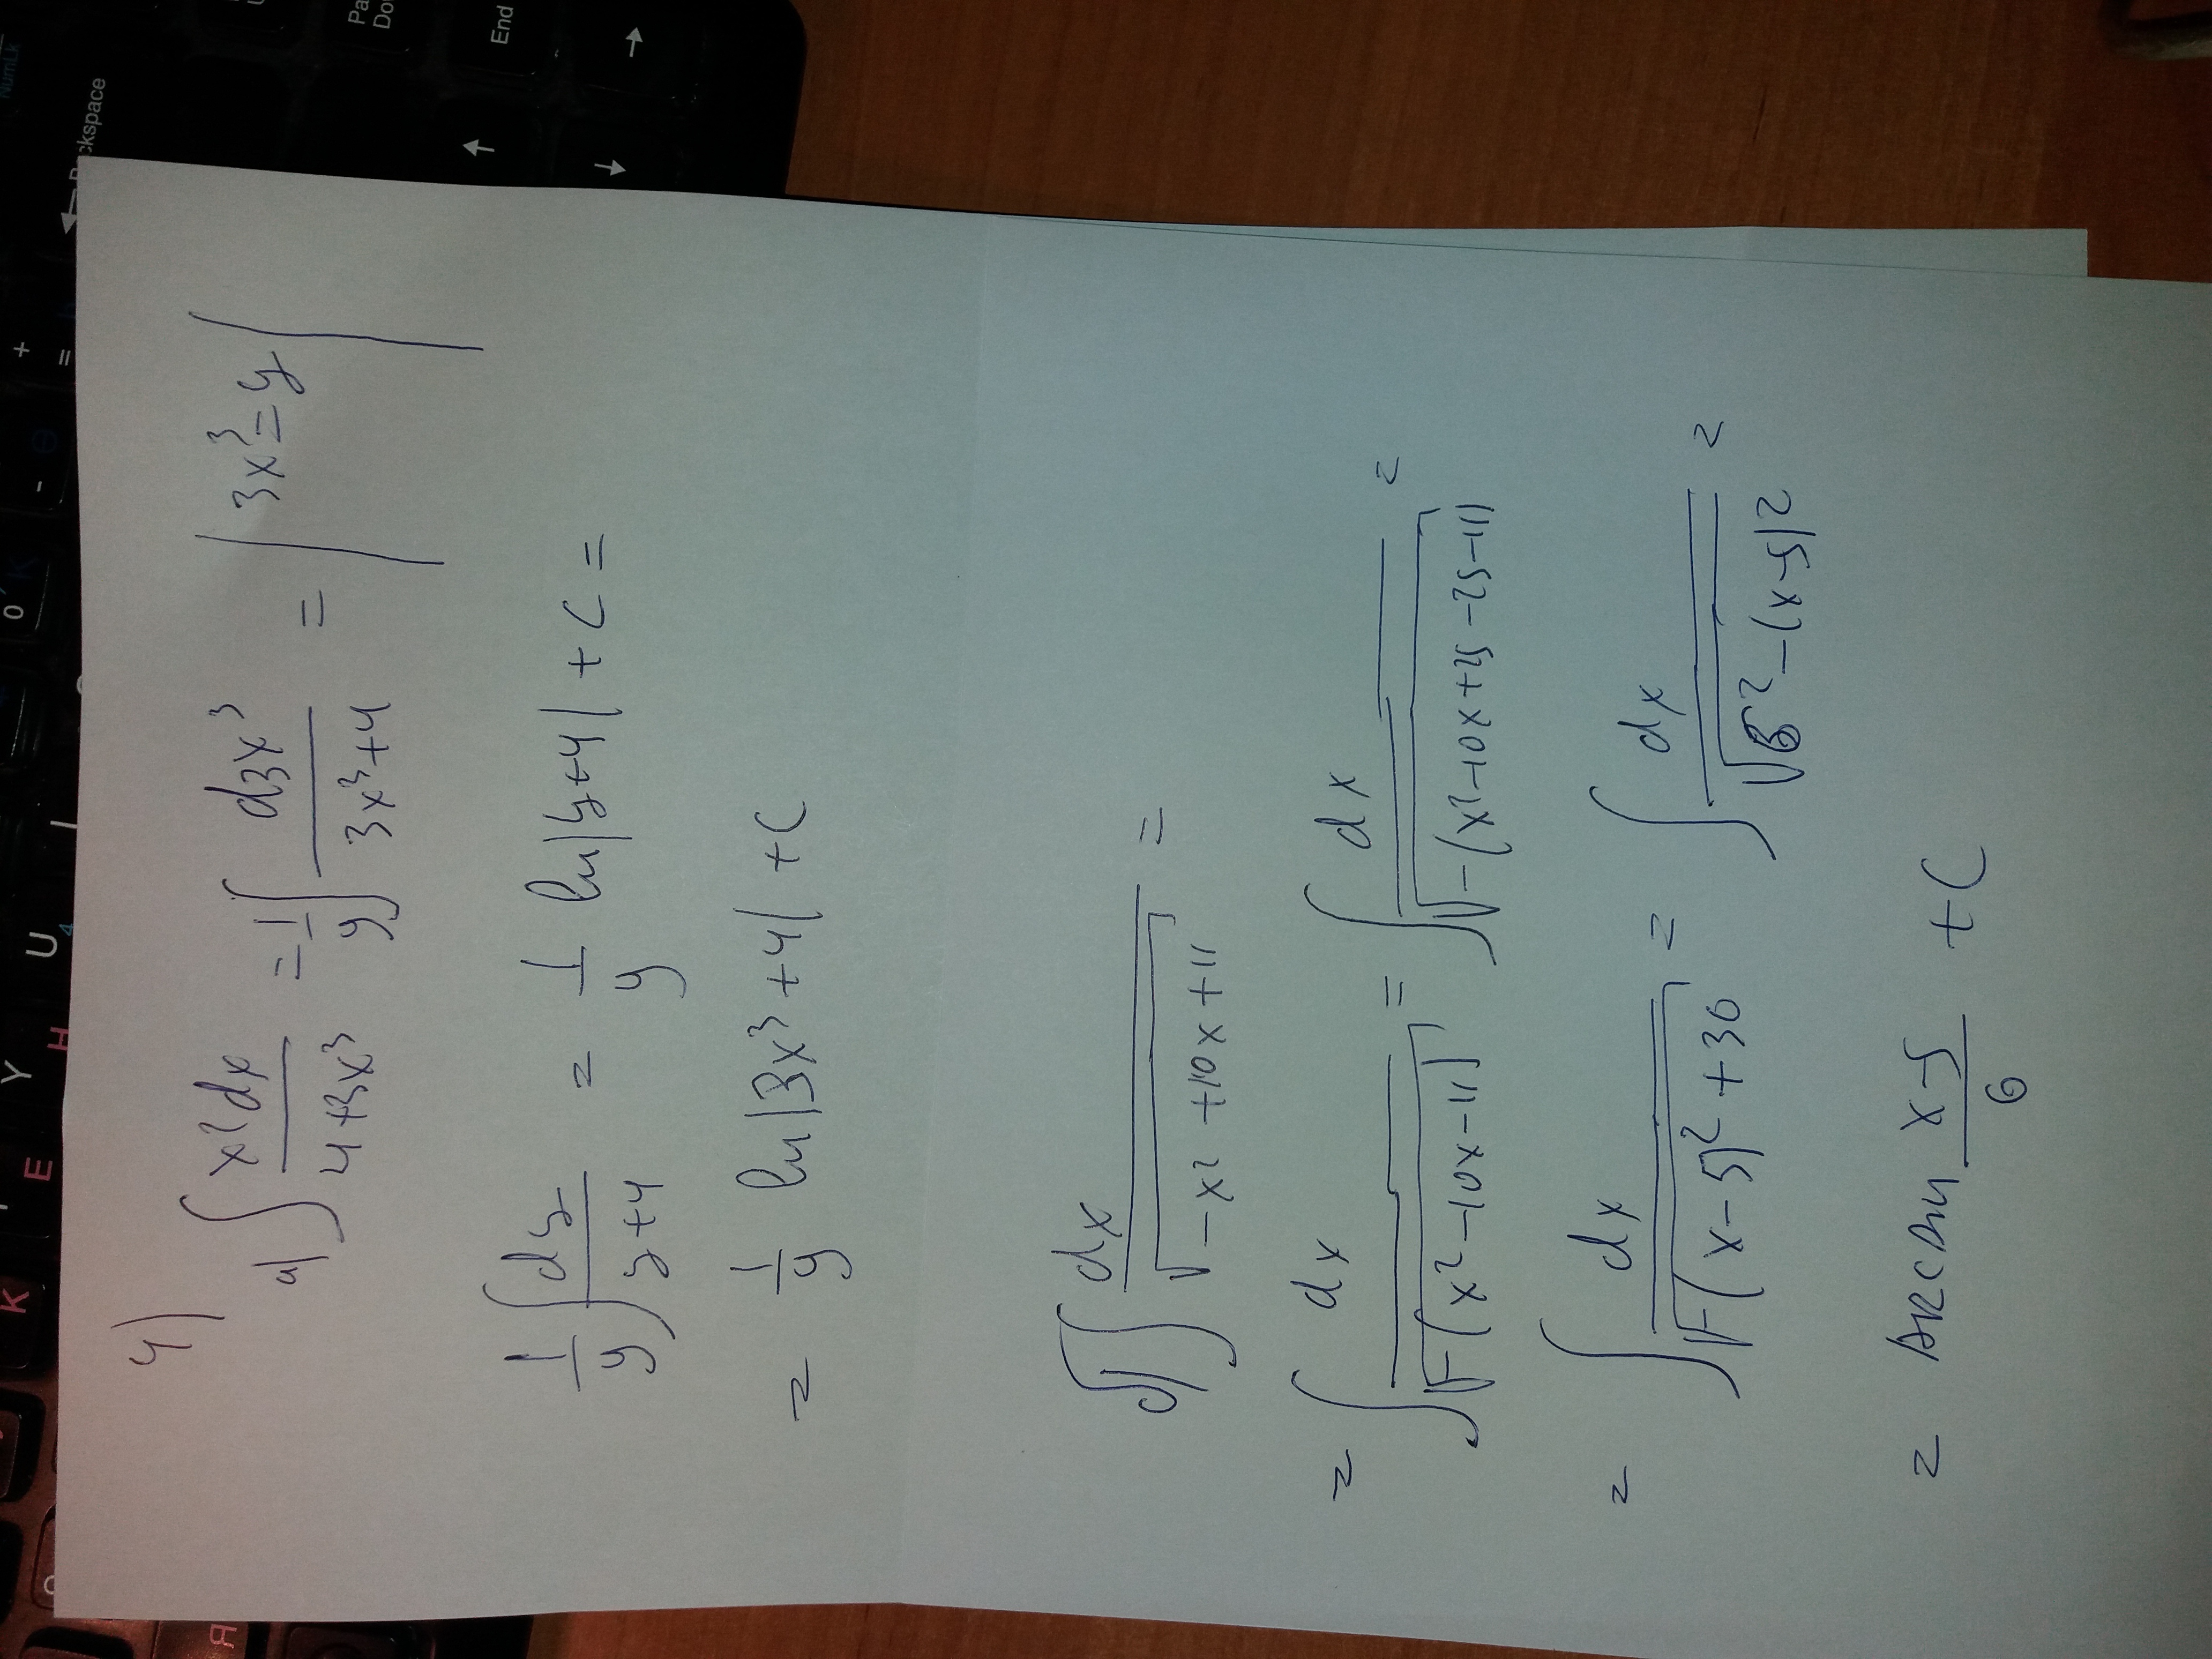 4)
а) ∫ x²dx / (4+3x³) = 1/9 ∫ d3x³ / (3x³+4) = | 3x³=y |
1/9 ∫ dy / (y+4) = 1/9 ln|y+4| + C =
= 1/9 ln|3x³+4| + C
б) ∫ dx / √(-x²+10x+11) =
= ∫ dx / √(-(x²-10x-11)) = ∫ dx / √(-(x²-10x+25-25-11)) =
= ∫ dx / √(-(x-5)²+36) = ∫ dx / √(6²-(x-5)²) =
= arcsin (x-5)/6 + C
Backspace
NumLk
End
Y
U
4
H
E
K
Я
0
K
+
=
-
→
↑
↓
←